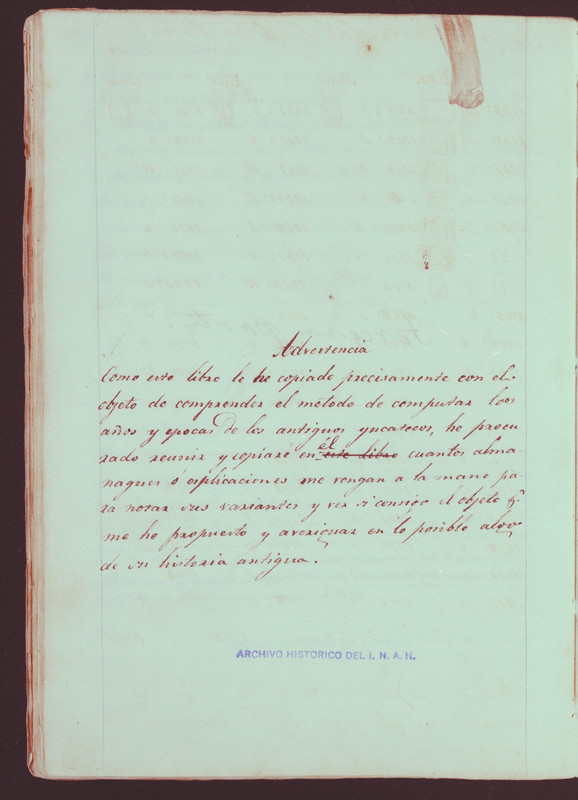 Advertencia
Como este libro le he copiado precisamente con el
objeto de comprender el método de computar loos
años y epocas de los antiguos yucatecos, he procu
rado reunir y copiaré en él este libro cuantos alma-
naques ó esplicaciones me vengan a la mano pa-
ra notar sus variantes y ver si consigo el objeto q.e
me he propuesto y averiguar en lo posible algo
de su historia antigua.
ARCHIVO HISTORICO DEL I. N. A. H.